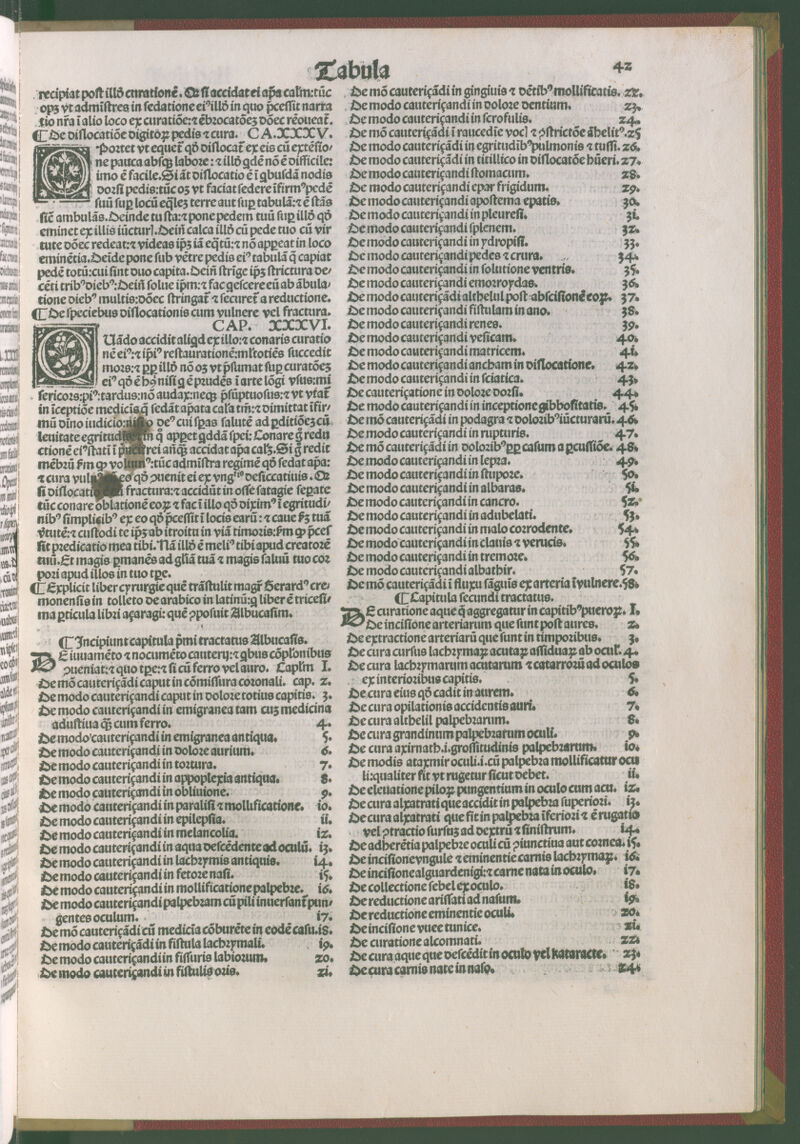 Tabula
42
recipiat post illd curationē. Qr si accidat ei apa caim: tūc
opz vt administres in sedatione ei⁹ illd in quo pcessit narra
tio nra ī alio loco ex curatiōe: ⁊ ēbrocatōez dōec reoueat.
¶ De dislocatiōe digitoꝝ pedis ⁊ cura. CA. XXXV.
OPortet vt equet qd dislocat ex eis cū extēsio-
ne pauca absqꝫ labore: ⁊ illd gdē nō ē difficile:
imo ē facile. Si āt dislocatio ē ī gbusdā nodis
dorsi pedis: tūc oz vt faciat sedere īfirm⁹ pedē
suū sup locū eqlez terre aut sup tabulā: ⁊ ē stās
sic ambulās. Deinde tu sta: ⁊ pone pedem tuū sup illd qd
eminet ex illis iūcturꝭ. Deiñ calca illd cū pede tuo cū vir
tute dōec redeat: ⁊ videas ipz iā eqtū: ⁊ nō appeat in loco
eminētia. Deīde pone sub vētre pedis ei⁹ tabulā q capiat
pedē totū: cui sint duo capita. Deiñ strīge ipz strictura de-
cēti trib⁹ dieb⁹: Deiñ solue ipm: ⁊ fac gescere eū ab ābula-
tione dieb⁹ multis: dōec stringat ⁊ securet a reductione.
¶ De speciebus dislocationis cum vulnere vel fractura.
CAP. XXXVI.
QUādo accidit aliqd ex illo: ⁊ conaris curatio
nē ei⁹: ⁊ ipi⁹ restaurationē: mltotiēs succedit
mors: ⁊ ppp illd nō oz vt psumat sup curatōez
ei⁹ qd ē h⁹ nisi q ē prudēs ī arte lōgi vsus: mi
sericors: pi⁹: tardus: nō audax: neqꝫ psūptuosus: ⁊ vt vtat
in īceptiōe medicis q sedāt apata calia tm: ⁊ dimittat īfir-
mū dino iudicio: nisi de⁹ cui spas salutē ad pditiōez cū
leuitate egritud in q appet gddā spei: Conare g redu
ctionē ei⁹ stati ī pn rei anqꝫ accidat apa calꝫ. Si g redit
mēbrū fm qd volum⁹: tūc admistra regimē qd sedat apa:
⁊ cura vul eo qd puenit ei ex vngtis desiccatiuis. Qr
si dislocatio fractura: ⁊ accidūt in osse satagie sepate
tūc conare oblationē eoꝝ ⁊ fac ī illo qd diximꝰ ī egritudi-
nib⁹ simplicib⁹ ex eo qd pcessit ī locis earū: ⁊ caue fꝫ tuā
vtutē: ⁊ custodi te ipz ab itroitu in viā timoris: fm qd pces
sit predicatio mea tibi. Nā illd ē meli⁹ tibi apud creatorē
tuū. Et magis pmanēs ad gliā tuā ⁊ magis saluū tuo cor
pori apud illos in tuo tpe.
¶ Explicit liber cyrurgie quē trāstulit magr Gerard⁹ cre-
monensis in tolleto de arabico in latinū: q liber ē tricesi-
ma pticula libri açaragi: quē pposuit Albucasim.
¶ Incipiunt capitula pmi tractatus Albucasis.
DE iuuamēto ⁊ nocumēto cauterij: ⁊ gbus cōplonibus
pueniat: ⁊ quo tpe: ⁊ si cū ferro vel auro. Caplm I.
De mō cauteriçādi caput in cōmissura coronali. cap. 2.
De modo cauteriçandi caput in dolore totius capitis. 3.
De modo cauteriçandi in emigranea tam cuz medicina
adustiua qꝫ cum ferro. 4.
De modo cauteriçandi in emigranea antiqua. 5.
De modo cauteriçandi in dolore aurium. 6.
De modo cauteriçandi in tortura. 7.
De modo cauteriçandi in appoplexia antiqua. 8.
De modo cauteriçandi in obliuione. 9.
De modo cauteriçandi in paralisi ⁊ mollificatione. 10.
De modo cauteriçandi in epilepsia. 11.
De modo cauteriçandi in melancolia. 12.
De modo cauteriçandi in aqua descēdente ad oculū. 13.
De modo cauteriçandi in lachrymis antiquis. 14.
De modo cauteriçandi in fetore nasi. 15.
De modo cauteriçandi in mollificatione palpebre. 16.
De modo cauteriçandi palpebram cū pili inuersant pun-
gentes oculum. 17.
De mō cauteriçādi cū medicīa cōburēte in eodē casu. 18.
De modo cauteriçādi in fistula lachrymali. 19.
De modo cauteriçandi in fissuris labiorum. 20.
De modo cauteriçandi in fistulis oris. 21.
De mō cauteriçādi in gingiuis ⁊ dētib⁹ mollificatis. 22.
De modo cauteriçandi in dolore dentium. 23.
De modo cauteriçandi in scrofulis. 24.
De mō cauteriçādi ī raucedīe vocꝭ ⁊ pstrictōe āhelit⁹. 25
De modo cauteriçandi in egritudib⁹ pulmonis ⁊ tussi. 26.
De modo cauteriçandi in titillico in dislocatōe hūeri. 27.
De modo cauteriçandi stomacum. 28.
De modo cauteriçandi epar frigidum. 29.
De modo cauteriçandi apostema epatis. 30.
De modo cauteriçandi in pleuresi. 31.
De modo cauteriçandi splenem. 32.
De modo cauteriçandi in ydropisi. 33.
De modo cauteriçandi pedes ⁊ crura. 34.
De modo cauteriçandi in solutione ventris. 35.
De modo cauteriçandi emoroydas. 36.
De modo cauteriçādi althelul post abscisionē eoꝝ. 37.
De modo cauteriçandi fistulam in ano. 38.
De modo cauteriçandi renes. 39.
De modo cauteriçandi vesicam. 40.
De modo cauteriçandi matricem. 41.
De modo cauteriçandi ancham in dislocatione. 42.
De modo cauteriçandi in sciatica. 43.
De cauteriçatione in dolore dorsi. 44.
De modo cauteriçandi in inceptione gibbositatis. 45.
De modo cauteriçādi in podagra ⁊ dolorib⁹ iūcturarū. 46.
De modo cauteriçandi in rupturis. 47.
De mō cauteriçādi in dolorib⁹ ppp casum a pcussiōe. 48.
De modo cauteriçandi in lepra. 49.
De modo cauteriçandi in stupore. 50.
De modo cauteriçandi in albaras. 51.
De modo cauteriçandi in cancro. 52.
De modo cauteriçandi in adubelati. 53.
De modo cauteriçandi in malo corrodente. 54.
De modo cauteriçandi in clauis ⁊ verucis. 55.
De modo cauteriçandi in tremore. 56.
De modo cauteriçandi albathir. 57.
De mō cauteriçādi ī fluxu sāguis ex arteria ī vulnere. 58.
¶ Capitula secundi tractatus.
DE curatione aque q aggregatur in capitib⁹ pueroꝝ. I.
De incisione arteriarum que sunt post aures. 2.
De extractione arteriarū que sunt in timporibus. 3.
De cura cursus lachrymaꝝ acutaꝝ assiduaꝝ ab ocul. 4.
De cura lachrymarum acutarum ⁊ catarroꝝū ad oculos
ex interioribus capitis. 5.
De cura eius qd cadit in aurem. 6.
De cura opilationis accidentis auri. 7.
De cura althelil palpebrarum. 8.
De cura grandinum palpebrarum oculi. 9.
De cura axirnath. i. grossitudinis palpebrarum. 10.
De modis ataxmir oculi. i. cū palpebra mollificatur ocu
li: qualiter fit vt rugetur sicut debet. 11.
De eleuatione piloꝝ pungentium in oculo cum acu. 12.
De cura alxatrati que accidit in palpebra superiori. 13.
De cura alxatrati que fit in palpebra īferiori ⁊ ē rugatio
vel ptractio sursuz ad dextrū ⁊ sinistrum. 14.
De adherētia palpebre oculi cū piunctiua aut cornea. 15.
De incisione vngule ⁊ eminentie carnis lachrymaꝝ. 16.
De incisione alguardenigi: ⁊ carne nata in oculo. 17.
De collectione sebel ex oculo. 18.
De reductione arissati ad nasum. 19.
De reductione eminentie oculi. 20.
De incisione vuee tunice. 21.
De curatione alcomnati. 22.
De cura aque que descēdit in oculo vel kataracte. 23.
De cura carnis nate in naso. 24.